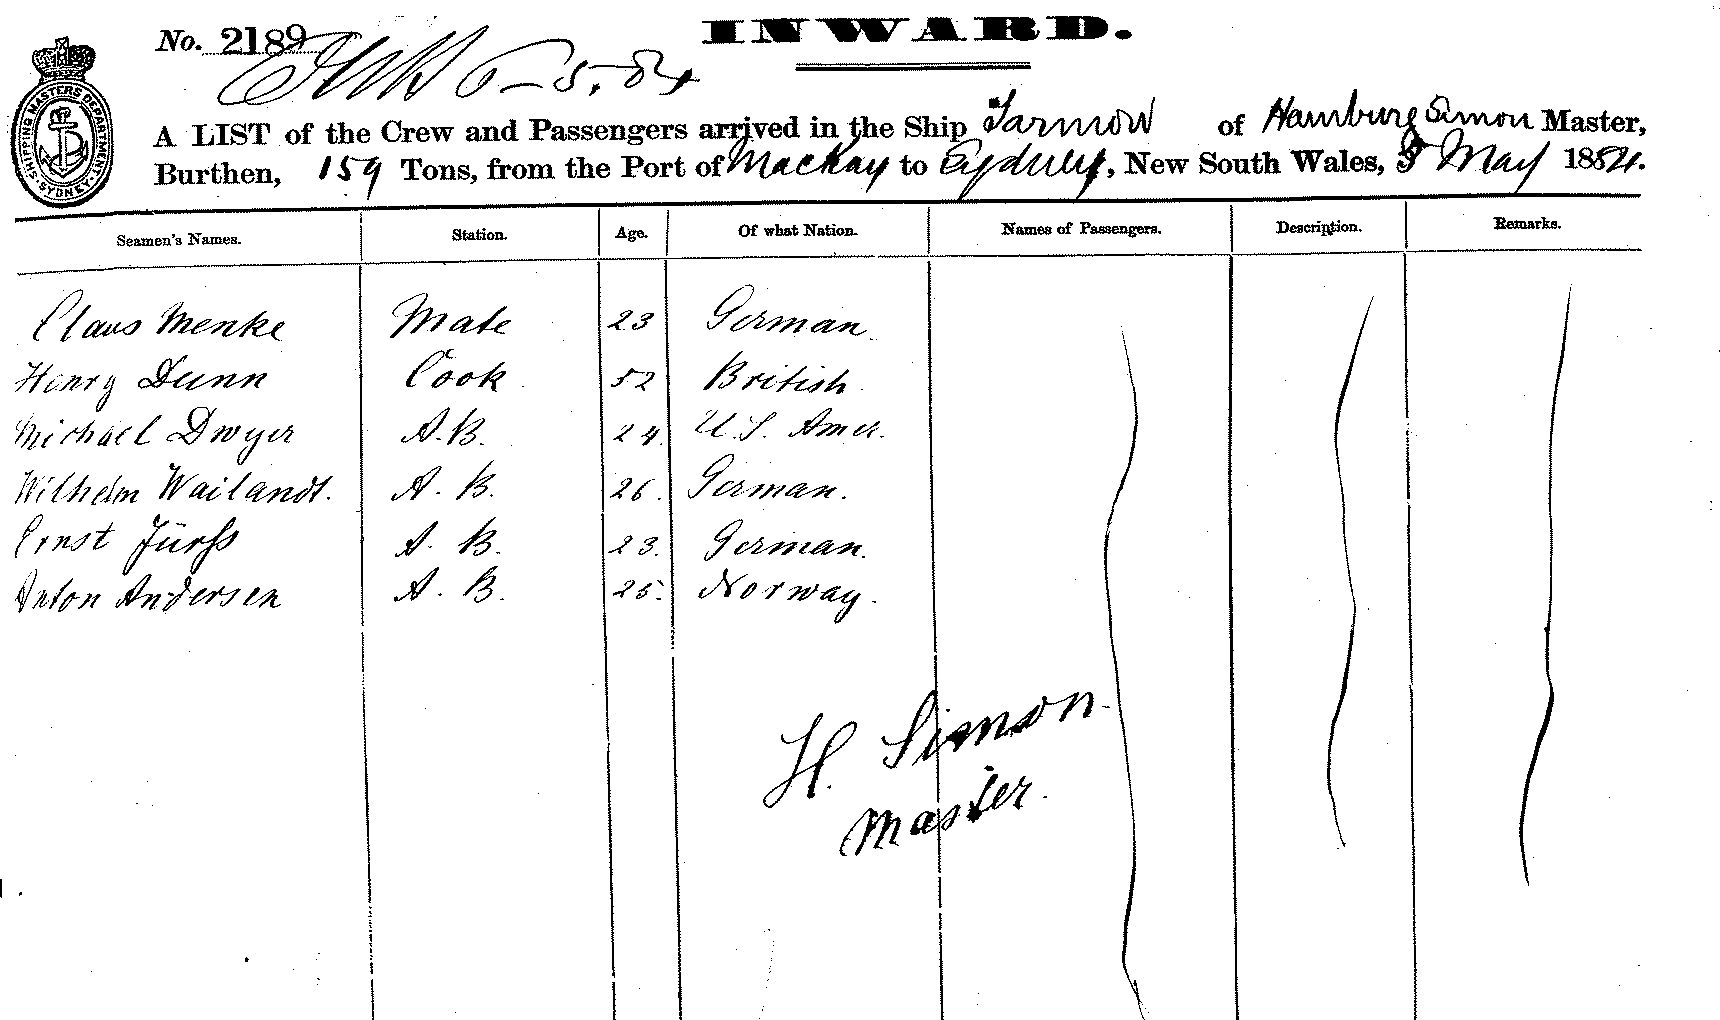 No. 2189
INWARD.
6-5.84
SHIPPING MASTERS DEPARTMENT SYDNEY
A LIST of the Crew and Passengers arrived in the Ship Tarmow of Hamburg Simon Master,
Burthen, 159 Tons, from the Port of Mackay to Sydney, New South Wales, 5 May 1884.
Seamen's Names. Station. Age. Of what Nation. Names of Passengers. Description. Remarks.
Claus Menke Mate 23 German.
Henry Dunn Cook 52 British.
Michael Dwyer A.B. 24. U.S. Amer.
Wilhelm Wailandt. A. B. 26. German.
Ernst Jürſs A. B. 23. German.
Anton Andersen A. B. 25. Norway.
H. Simon
Master.